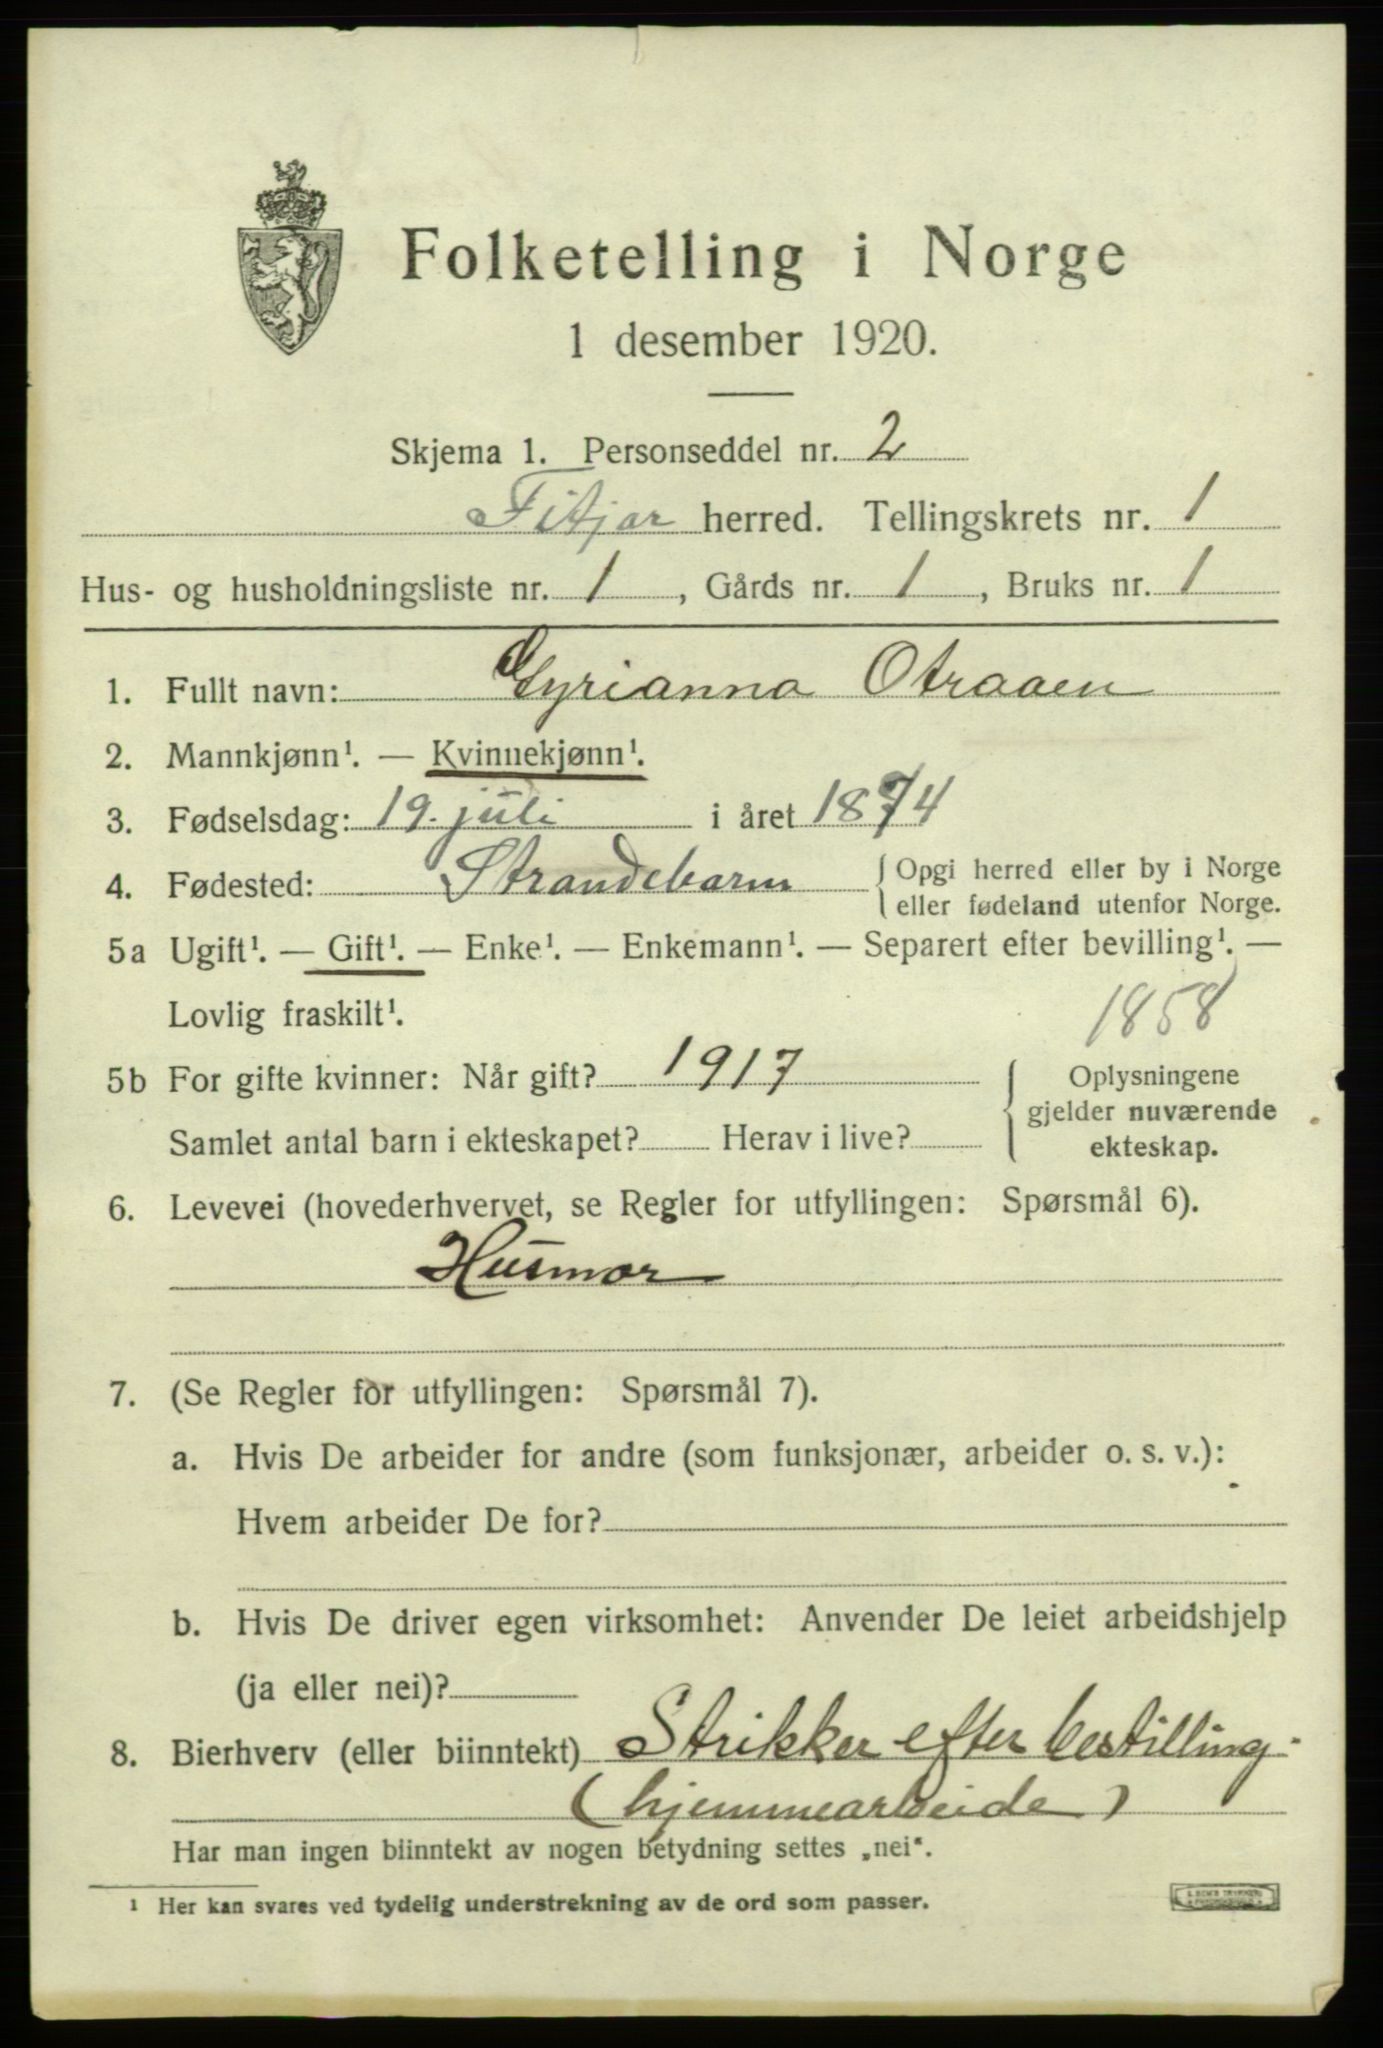 Folketelling i Norge
1 desember 1920.
Skjema 1. Personseddel nr. 2
Fitjar herred. Tellingskrets nr. 1
Hus- og husholdningsliste nr. 1, Gårds nr. 1, Bruks nr. 1
1. Fullt navn: Gyrianna Otraaen
2. Mannkjønn¹. — Kvinnekjønn¹.
3. Fødselsdag: 19. juli i året 1874
4. Fødested: Strandebarm { Opgi herred eller by i Norge
eller fødeland utenfor Norge.
5a Ugift¹. — Gift¹. — Enke¹. — Enkemann¹. — Separert efter bevilling¹. —
Lovlig fraskilt¹.
1858
5b For gifte kvinner: Når gift? 1917 { Oplysningene
gjelder nuværende
ekteskap.
Samlet antal barn i ekteskapet? Herav i live?
6. Levevei (hovederhvervet, se Regler for utfyllingen: Spørsmål 6).
Husmor
7. (Se Regler for utfyllingen: Spørsmål 7).
a. Hvis De arbeider for andre (som funksjonær, arbeider o. s. v.):
Hvem arbeider De for?
b. Hvis De driver egen virksomhet: Anvender De leiet arbeidshjelp
(ja eller nei)?
8. Bierhverv (eller biinntekt) Strikker efter bestilling.
(hjemmearbeide)
Har man ingen biinntekt av nogen betydning settes „nei“.
¹ Her kan svares ved tydelig understrekning av de ord som passer.